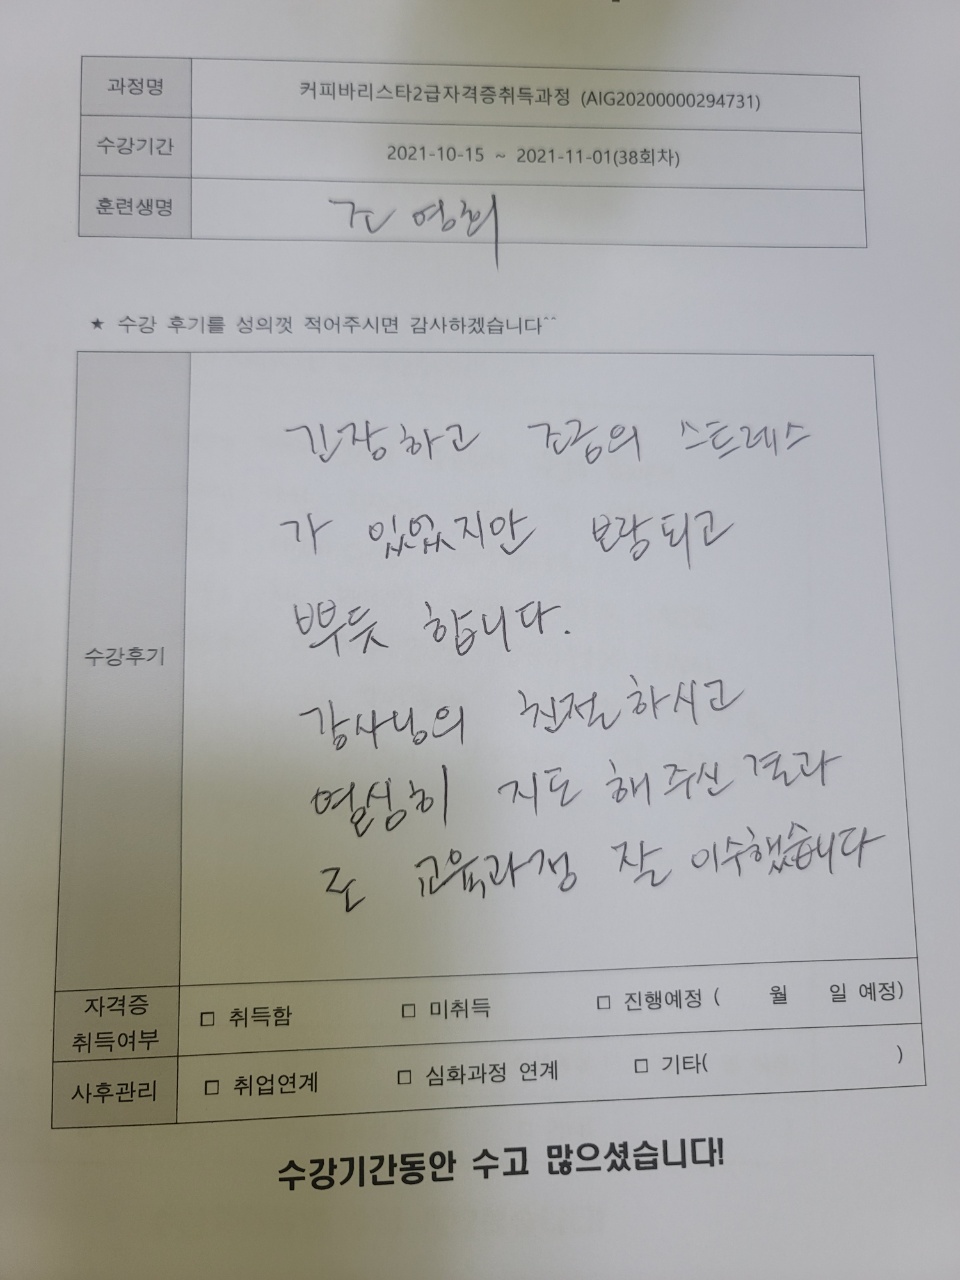 과정명 커피바리스타2급자격증취득과정 (AIG20200000294731)
수강기간 2021-10-15 ~ 2021-11-01(38회차)
훈련생명 조영희
★ 수강 후기를 성의껏 적어주시면 감사하겠습니다^^
수강후기
긴장하고 조금의 스트레스
가 있었지만 보람되고
뿌듯 합니다.
강사님의 친절하시고
열심히 지도 해주신 결과
로 교육과정 잘 이수했습니다
자격증
취득여부 □ 취득함 □ 미취득 □ 진행예정 ( 월 일 예정)
사후관리 □ 취업연계 □ 심화과정 연계 □ 기타( )
수강기간동안 수고 많으셨습니다!